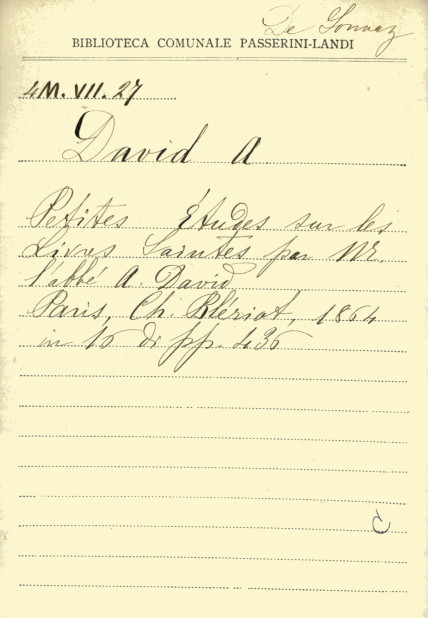 De Sonnaz
BIBLIOTECA COMUNALE PASSERINI-LANDI
4M. VII. 27
David A
Petites Études sur les
Livres Saintes par Mr.
l'abbé A. David
Paris, Ch. Blériot, 1864
in 16 di pp. 436
C